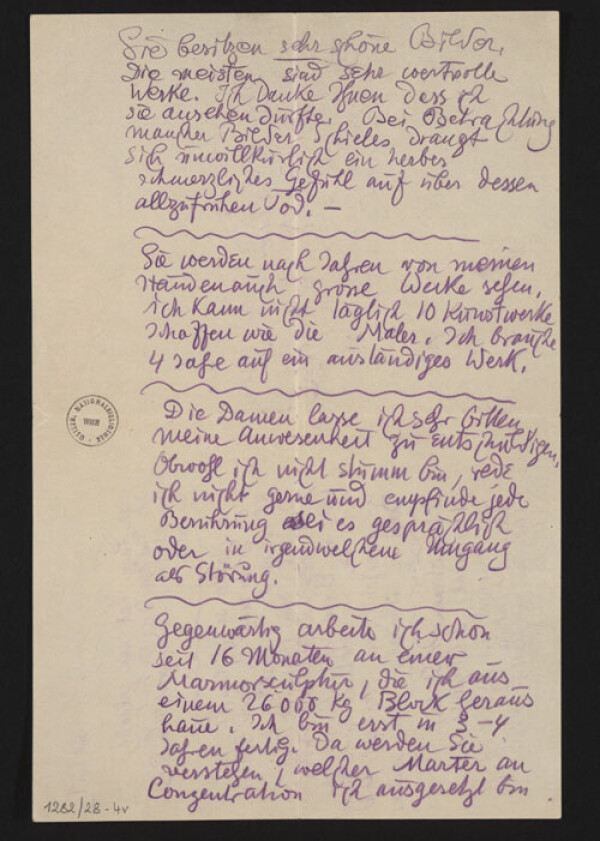 Sie besitzen sehr schöne Bilder.
Die meisten sind sehr wertvolle
Werke. Ich Danke Ihnen dass ich
sie ansehen durfte. Bei Betrachtung
mancher Bilder Schieles drangt
sich unwillkürlich ein herbes
schmerzliches Gefühl auf über dessen
allzufrühen Tod. —
Sie werden nach Jahren von meinen
Händen auch grosse Werke sehen,
ich kann nicht täglich 10 Kunstwerke
schaffen wie die Maler. Ich brauche
4 Jahre auf ein anständiges Werk.
Die Damen lasse ich sehr bitten
meine Anwesenheit zu entschuldigen,
Obwohl ich nicht stumm bin, rede
ich nicht gerne und empfinde jede
Berührung sei es gesprächlich
oder in irgendwelchem Umgang
als Störung.
Gegenwärtig arbeite ich schon
seit 16 Monaten an einer
Marmorsculptur, die ich aus
einem 26000 Kg Block heraus
haue. Ich bin erst in 3–4
Jahren fertig. Da werden Sie
verstehen, welcher Marter an
Conzentration ich ausgesetzt bin
ÖSTERR. NATIONALBIBLIOTHEK
WIEN
1282/28-4v